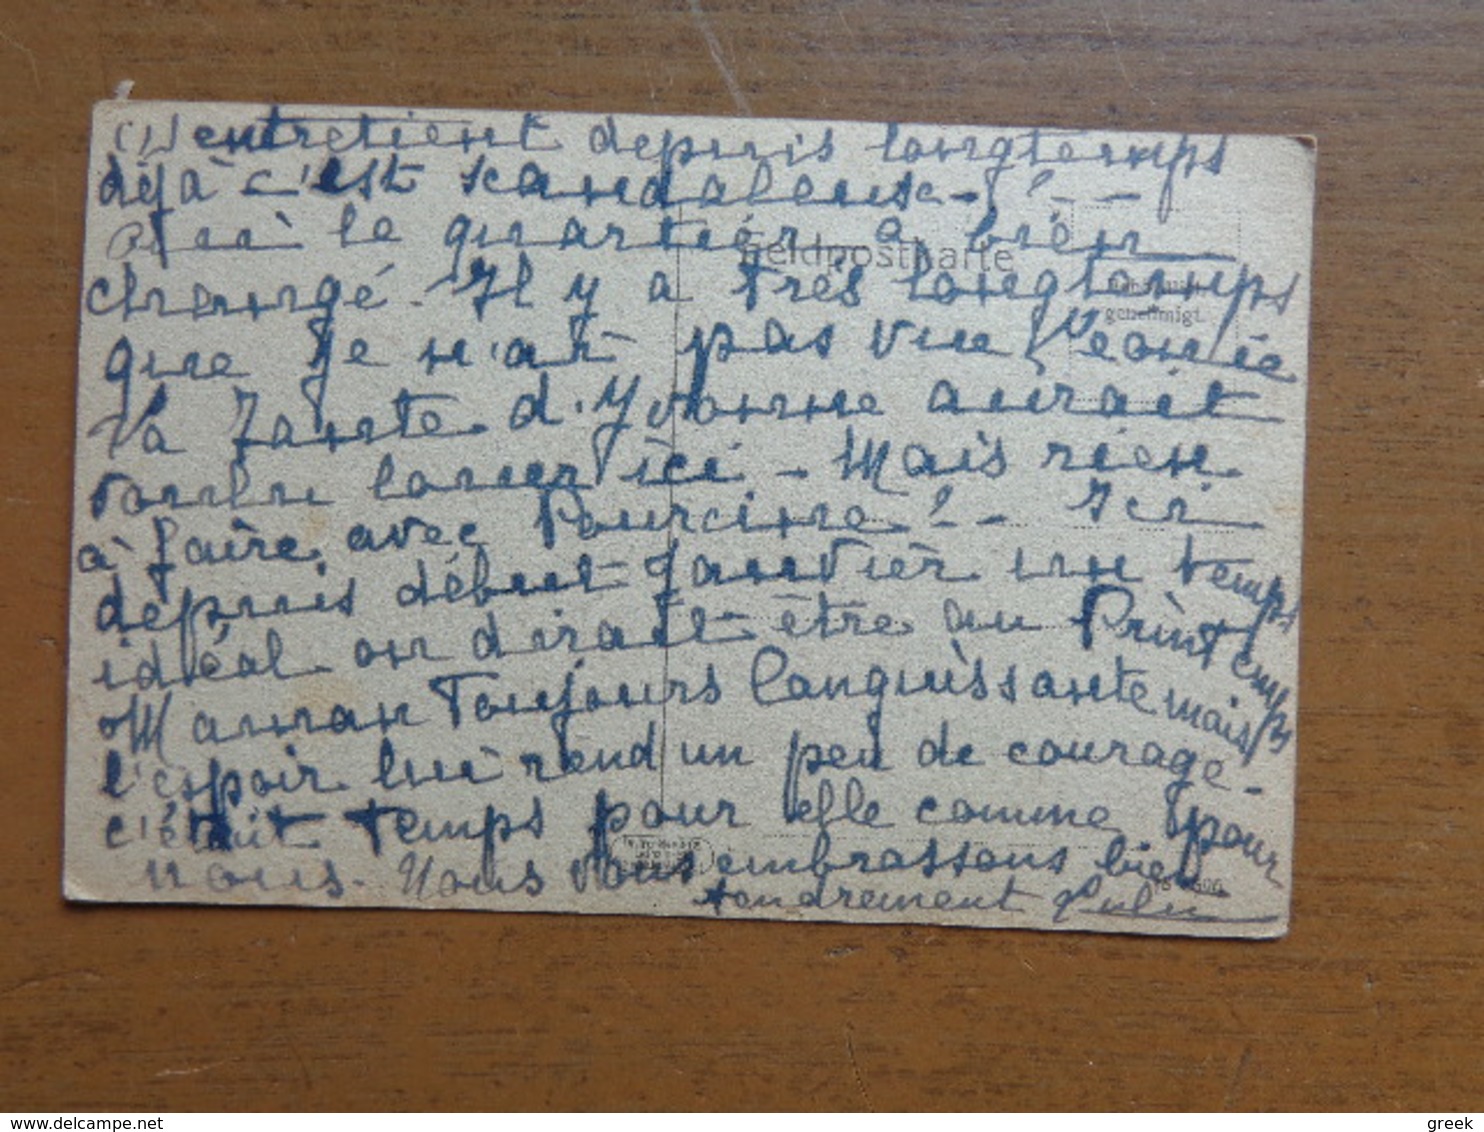 entretient depuis longtemps
déjà c'est scandaleuse - ! - -
oui le quartier a bien
changé. Il y a très longtemps
que je n'ai pas vu Léonie
la Tante d'Yvonne aurait
voulu louer ici - Mais rien
à faire avec Pourcine ! - - Ici
depuis début Janvier un temps
idéal on dirait être au Printemps
Maman Toujours languissante mais
l'espoir lui rend un peu de courage -
c'était temps pour elle comme pour
nous. Nous vous embrassons bien
tendrement Lulu
Feldpostkarte
genehmigt.
delcampe.net
greek